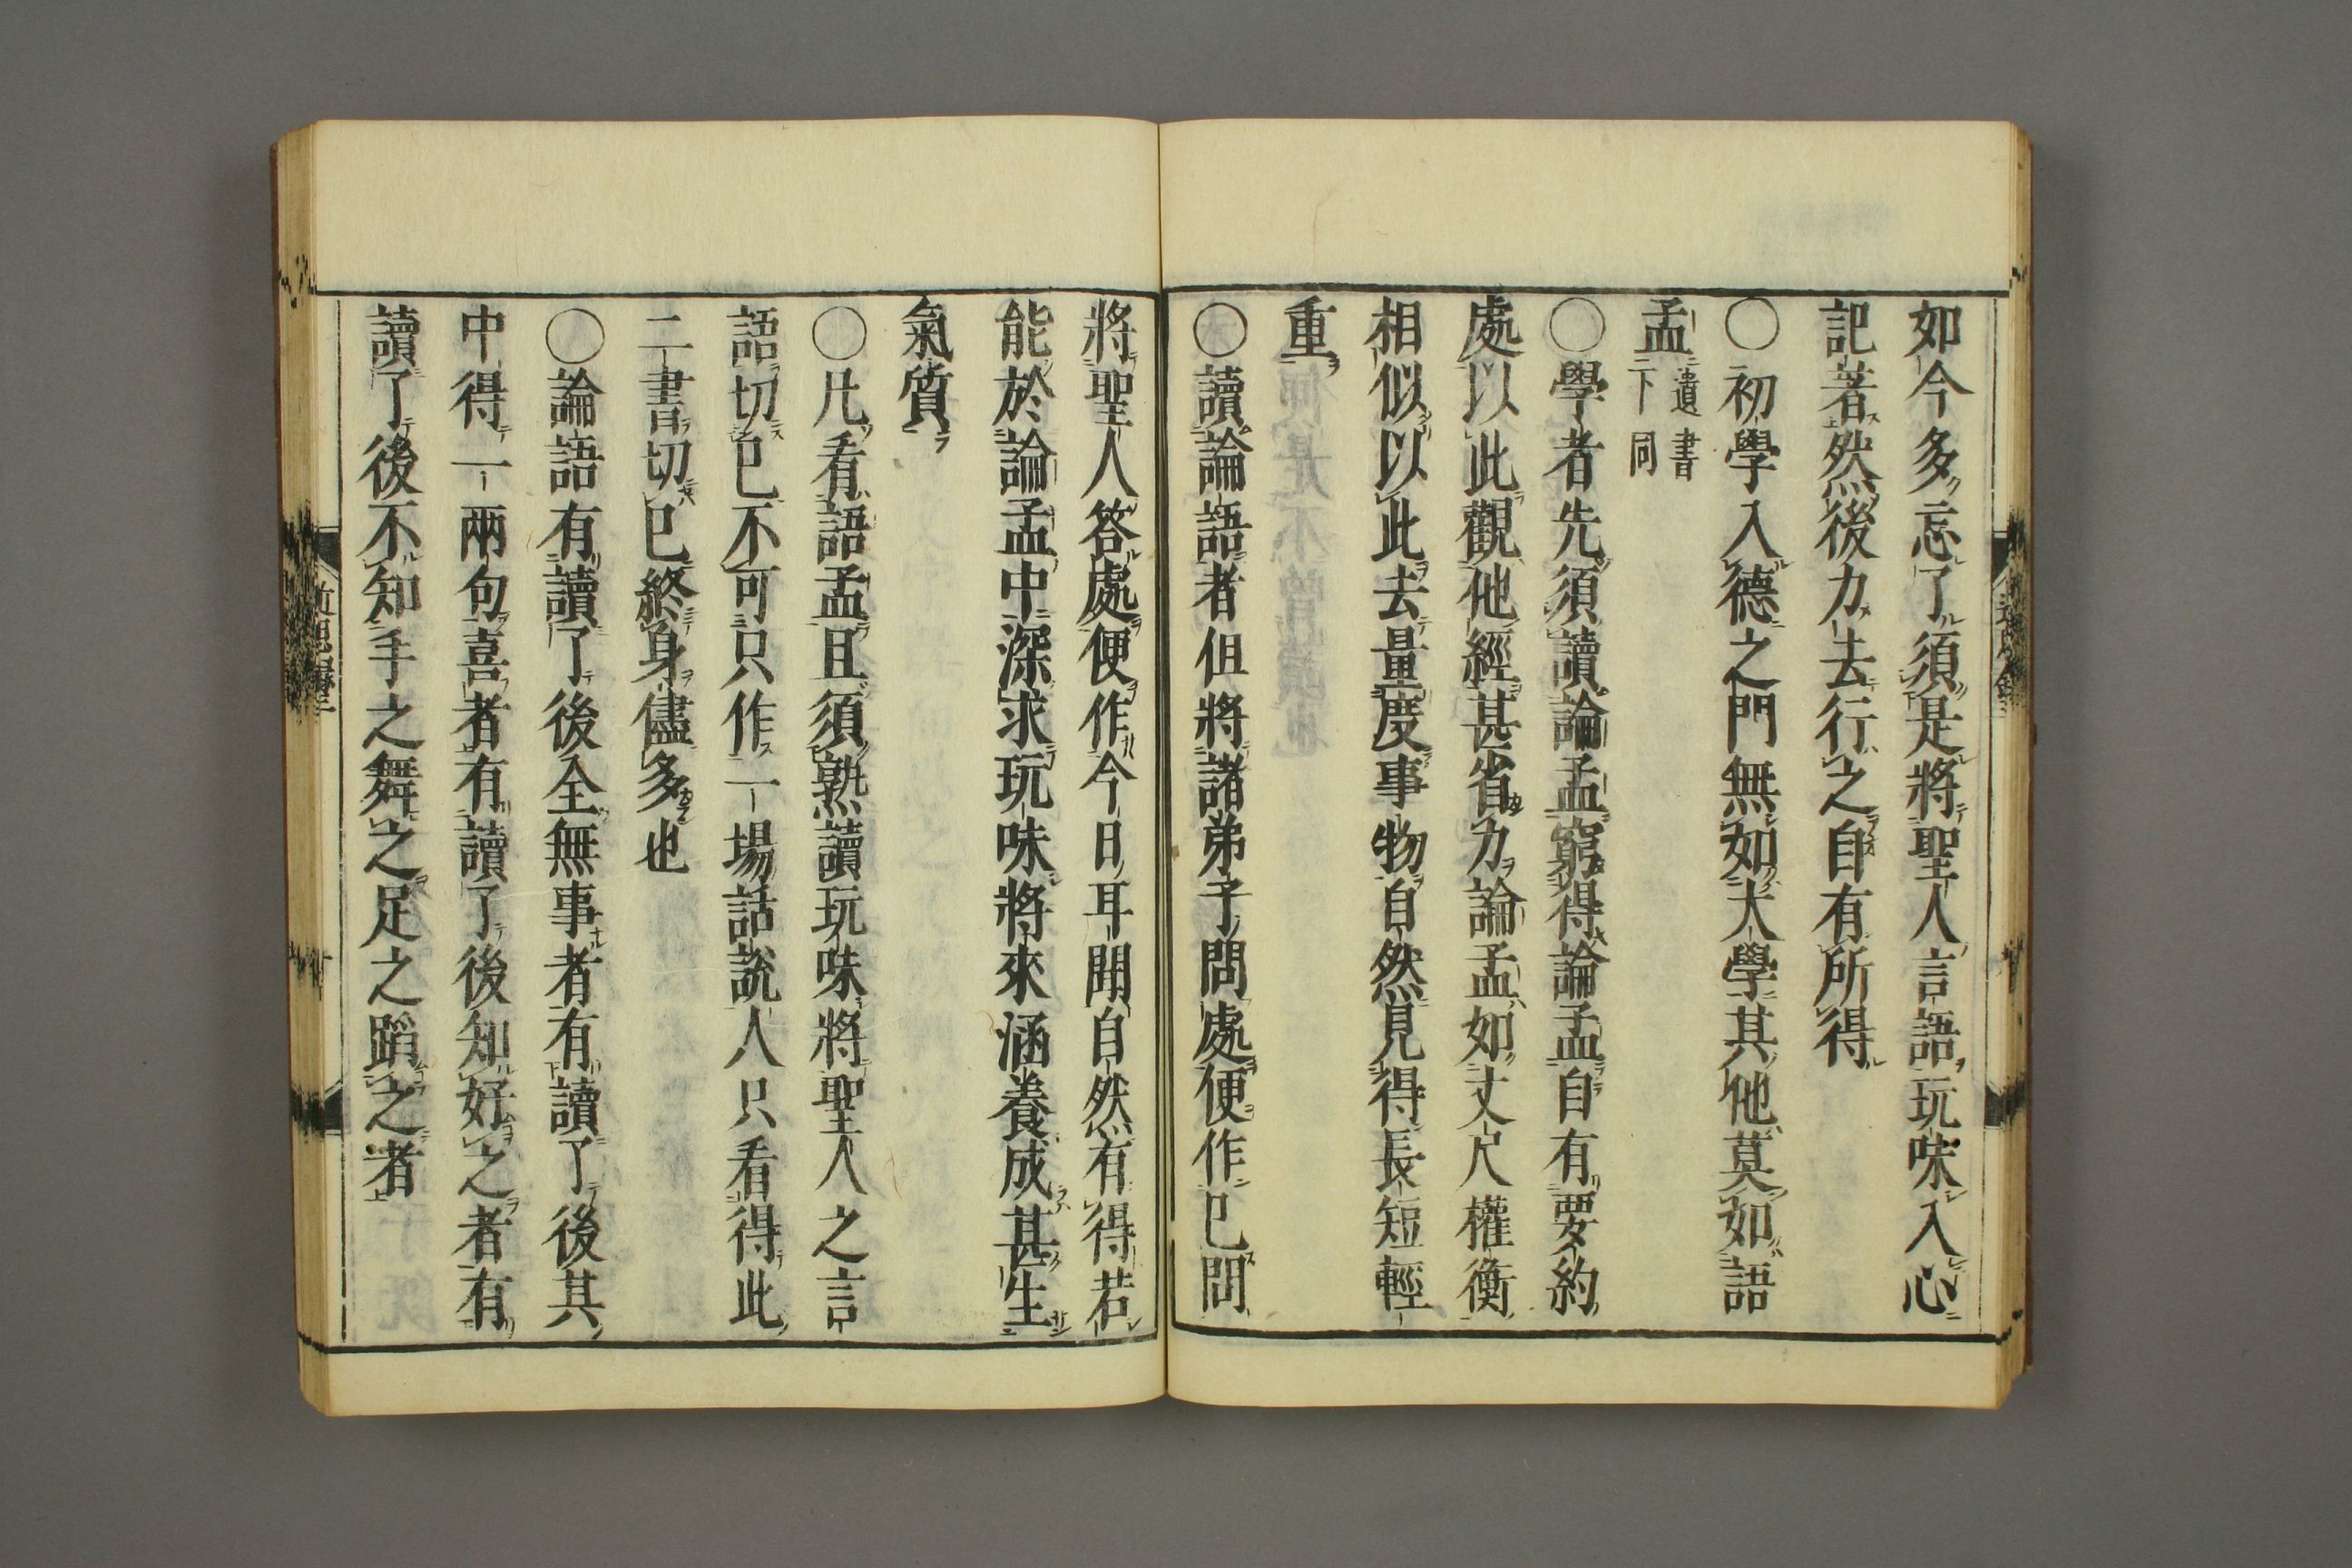 如今多忘了須是將聖人言語玩味入心
記著然後力去行之自有所得
○初學入德之門無如大學其他莫如語
孟遺書下同
○學者先須讀論孟窮得論孟自有要約
處以此觀他經甚省力論孟如丈尺權衡
相似以此去量度事物自然見得長短輕
重
○讀論語者但將諸弟子問處便作已問
將聖人答處便作今日耳聞自然有得若
能於論孟中深求玩味將來涵養成甚生
氣質
○凡看語孟且須熟讀玩味將聖人之言
語切已不可只作一場話說人只看得此
二書切已終身儘多也
○論語有讀了後全無事者有讀了後其
中得一兩句喜者有讀了後知好之者有
讀了後不知手之舞之足之蹈之者